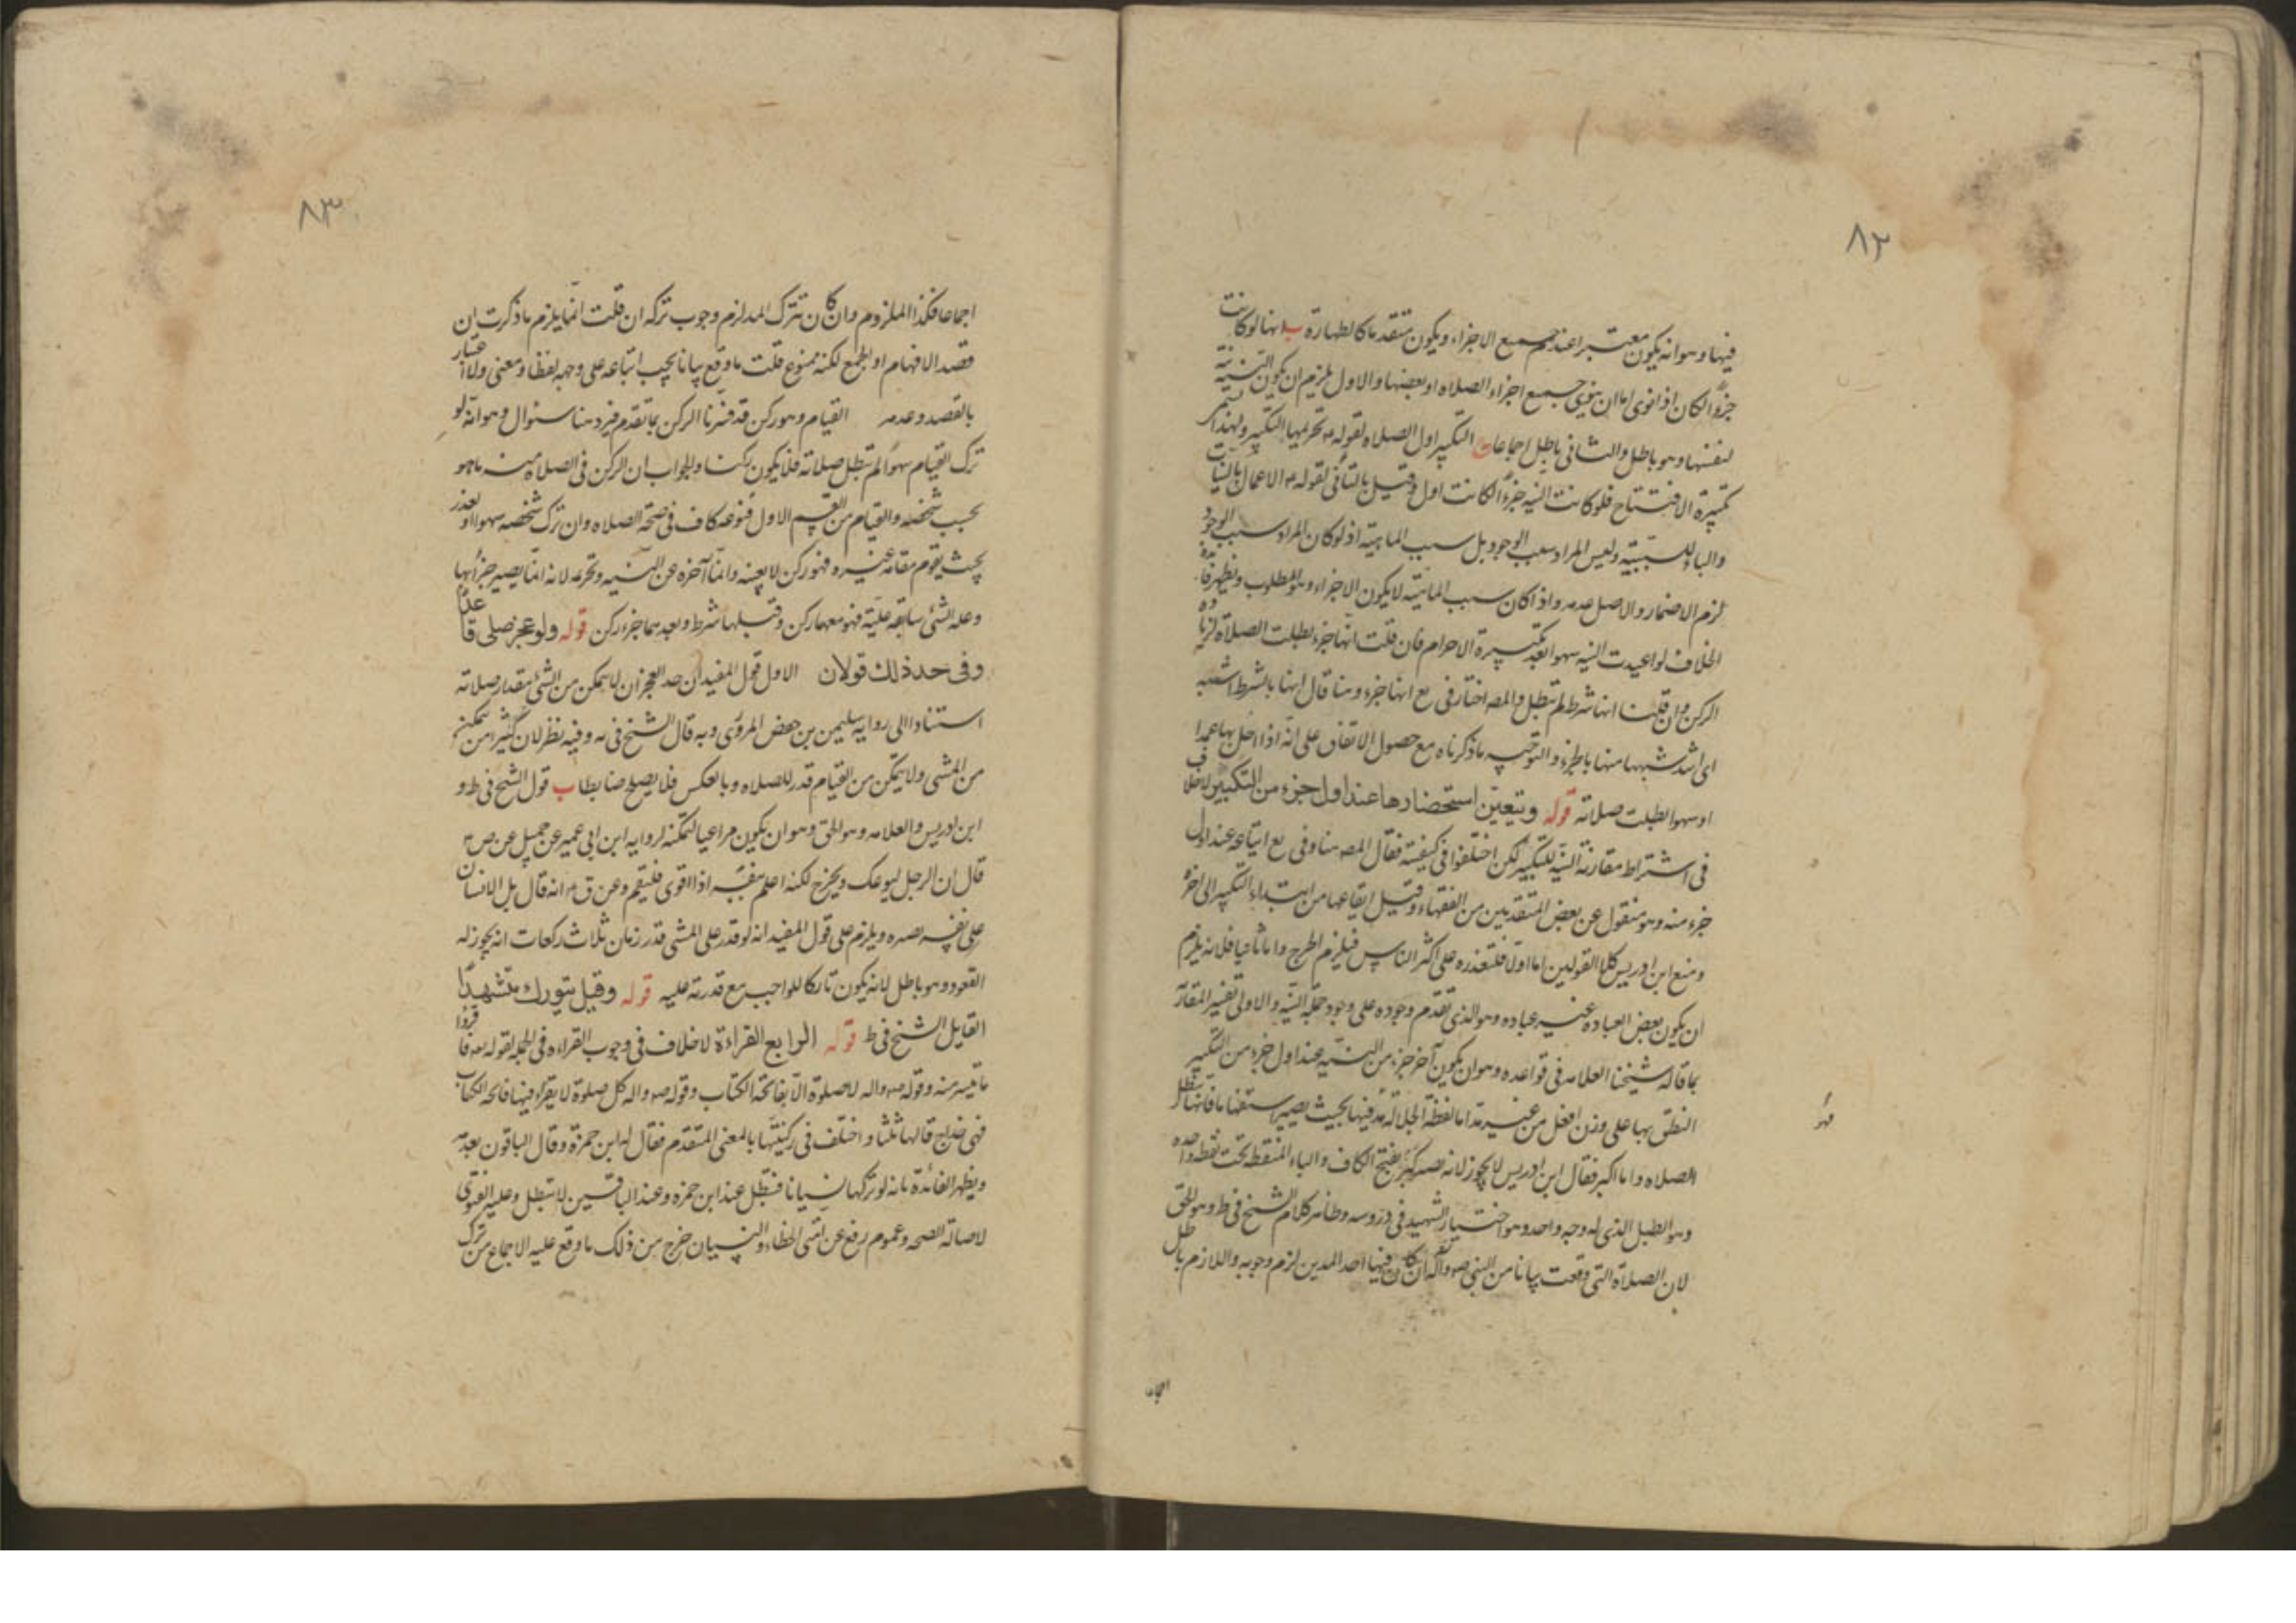 ٨٢
فيها وهو انه يكون معتبرا عند جميع الاجزاء ويكون متقدما كالطهارة ب انها لو كانت
جزءاً لكان اذا نوى اما ان ينوى جميع اجزاء الصلاه او بعضها والاول يلزم ان يكون النيّة نيّة
لنفسها وهو باطل والثانى باطل اجماعا ج التكبير اول الصلاه لقوله ع تحريمها التكبير ولهذا سمّى
تكبيرة الافتتاح فلو كانت النيه جزءاً لكانت اول وقيل بالثانى لقوله ع الاعمال بالنيات
والباء للسببيّة وليس المراد سبب الوجود بل سبب الماهيّة اذ لو كان المراد سبب الوجود
لزم الاضمار والاصل عدمه واذا كان سبب الماهيّة لا يكون الا جزاء وهو المطلوب ويظهر فائدة
الخلاف لو اعيدت النيه سهوا بعد تكبيرة الاحرام فان قلت انها جزء بطلت الصلاة لزياده
الركن وان قلنا انها شرط لم تبطل والمصه اختار فى يع انها جزء وهنا قال انها بالشرط اشبه
اى اشد شبهها منها بالجزء والتوجيه ما ذكرناه مع حصول الاتفاق على انّه اذا اخل بها عمدا
او سهوا بطلت صلاته قوله ويتعيّن استحضارها عند اول جزء من التكبير لا خلاف
فى اشتراط مقارنة النيّة للتكبير لكن اختلفوا فى كيفيته فقال المصه هنا وفى يع ايقاعه عند اول
جزء منه وهو منقول عن بعض المتقدمين من الفقهاء وقيل ايقاعها من ابتداء التكبير الى اخره
ومنع ابن ادريس كلا القولين اما اولا فلتعذره على اكثر الناس فيلزم الحرج واما ثانيا فلانه يلزم
ان يكون بعض العباده غير عباده وهو الذى تقدم وجوده على وجود جملة النيّة والاولى تفسير المقارنة
بما قاله شيخنا العلامه فى قواعده وهو ان يكون آخر جزء من النيّه عند اول جزء من التكبير
النطق بها على وزن افعل من غير مد اما لفظة الجلالة مد فيها بحيث يصير استفهاما فانها تبطل
الصلاه واما اكبر فقال ابن ادريس لا يجوز لانه يصير كبَر بفتح الكاف والباء المنقطه تحت نقطه واحده
وهو الطبل الذى له وجه واحد وهو اختيار الشهيد فى دروسه وظاهر كلام الشيخ فى ط وهو الحق
لان الصلاة التى وقعت بيانا من النبى صه وآله ان كان فيها احد المدين لزم وجوبه واللازم باطل
اجماعا
٨٣
اجماعا فكذا الملزوم وان كان تترك المد لزم وجوب تركه ان قلت انما يلزم ما ذكرت ان
قصد الافهام او الجمع لكنه ممنوع قلت ما وقع بيانا يجب اتباعه على وجهه لفظا ومعنى ولا اعتبار
بالقصد وعدمه القيام وهو ركن قد فسّرنا الركن بما تقدم فيرد هنا سؤال وهو انّه لو
ترك القيام سهواً لم تبطل صلاته فلا يكون ركنا والجواب ان الركن فى الصلاه منه ما هو
بحسب شخصه والقيام من القسم الاول فنوعه كاف فى صحة الصلاه وان ترك شخصه سهوا او لعذر
بحيث يقوم مقامه غيره فهو ركن لا بعينه وانما آخره عن النيّه وتحرمه لانه انما يصير جزأ بها
وعلة الشئ سابقه عليه فهو معها ركن وقبلها شرط وبعدهما جزء ركن قوله ولو عجز صلى قاعدا
وفى حد ذلك قولان الاول قول المفيد ان حد العجز ان لا يتمكن من الشئ بمقدار صلاته
استنادا الى رواية سليمن بن حفص المروى وبه قال الشيخ فى يه وفيه نظر لان كثيرا من يتمكن
من المشى ولا يتمكن من القيام قدر للصلاه وبالعكس فلا يصلح ضابطا ب قول الشيخ فى ط و
ابن ادريس والعلامه وهو الحق وهو ان يكون مراعيا لتمكنه لروايه ابن ابى عمير عن جميل عن ص ع
قال ان الرجل ليوعك ويحرج لكنه اعلم بنفسه اذا اقوى فليقم وعن ق ع انه قال بل الانسان
على نفسه بصيره ويلزم على قول المفيد انه لو قدر على المشى قدر زمان ثلاث ركعات انه يجوز له
القعود وهو باطل لانه يكون تاركا للواجب مع قدرته عليه قوله وقيل يتورك متشهدًا
القايل الشيخ فى ط قوله الرابع القراءة لا خلاف فى وجوب القراءه فى الجمله لقوله تعه فاقرؤا
ما تيسر منه وقوله صه واله لا صلوة الّا بفاتحة الكتاب وقوله صه واله كل صلوة لا يقرء فيها فاتحه الكتاب
فهى خداج قالها ثلثا واختلف فى ركنيّتها بالمعنى المتقدم فقال به ابن حمزة وقال الباقون بعدمه
ويظهر الفائدة بانه لو تركها نسيانا فتبطل عند ابن حمزه وعند الباقين لا تبطل وعليه الفتوى
لاصالة الصحه وعموم رفع عن امتى الخطاء والنسيان خرج من ذلك ما وقع عليه الاجماع من ترك